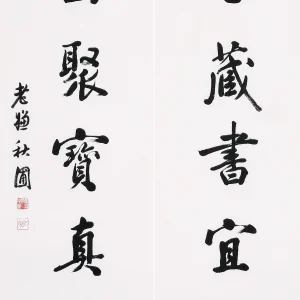 藏書宜
聚寶真
老秋圃